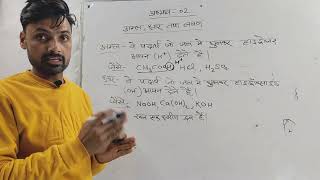 अध्याय-02
अम्ल, क्षार तथा लवण
अम्ल- वे पदार्थ जो जल में घुलकर हाइड्रोजन
आयन (H⁺) देते हैं।
जैसे- CH₃COOH, HCl, H₂SO₄
क्षार- वे पदार्थ जो जल में घुलकर हाइड्रॉक्साइड
(OH) आयन देते हैं।
जैसे:- NaOH, Ca(OH)₂, KOH